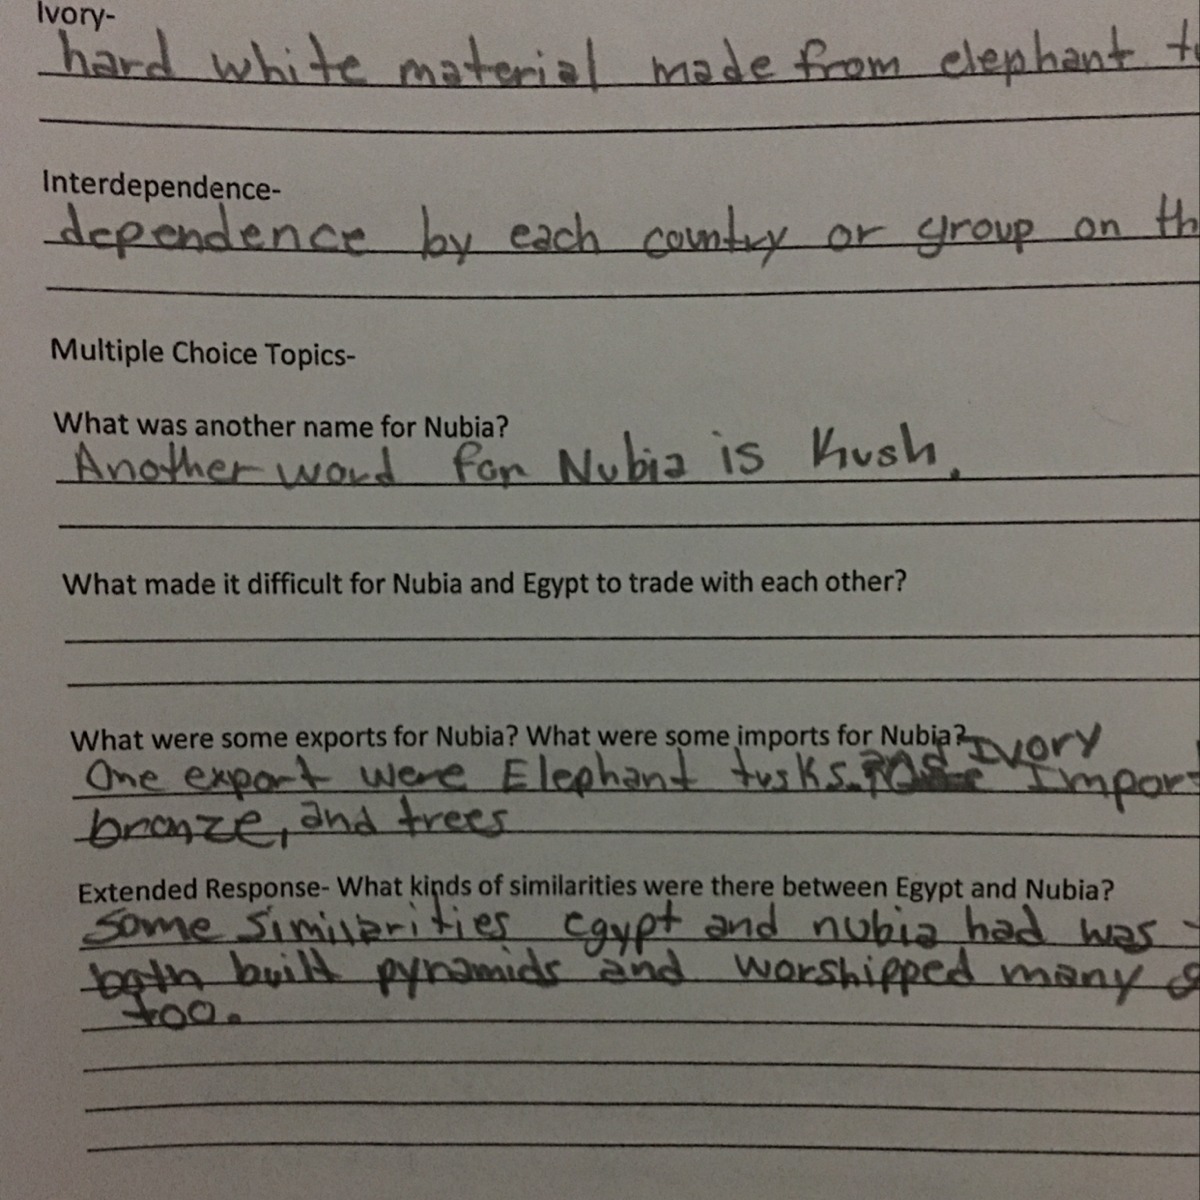 Ivory-
hard white material made from elephant
Interdependence-
dependence by each country or group on
Multiple Choice Topics-
What was another name for Nubia?
Another word for Nubia is Kush.
What made it difficult for Nubia and Egypt to trade with each other?
What were some exports for Nubia? What were some imports for Nubia?
One export were Elephant tusks. Ivory Import
bronze, and trees
Extended Response- What kinds of similarities were there between Egypt and Nubia?
Some Similarities egypt and nubia had was
both built pyramids and worshipped many
too.